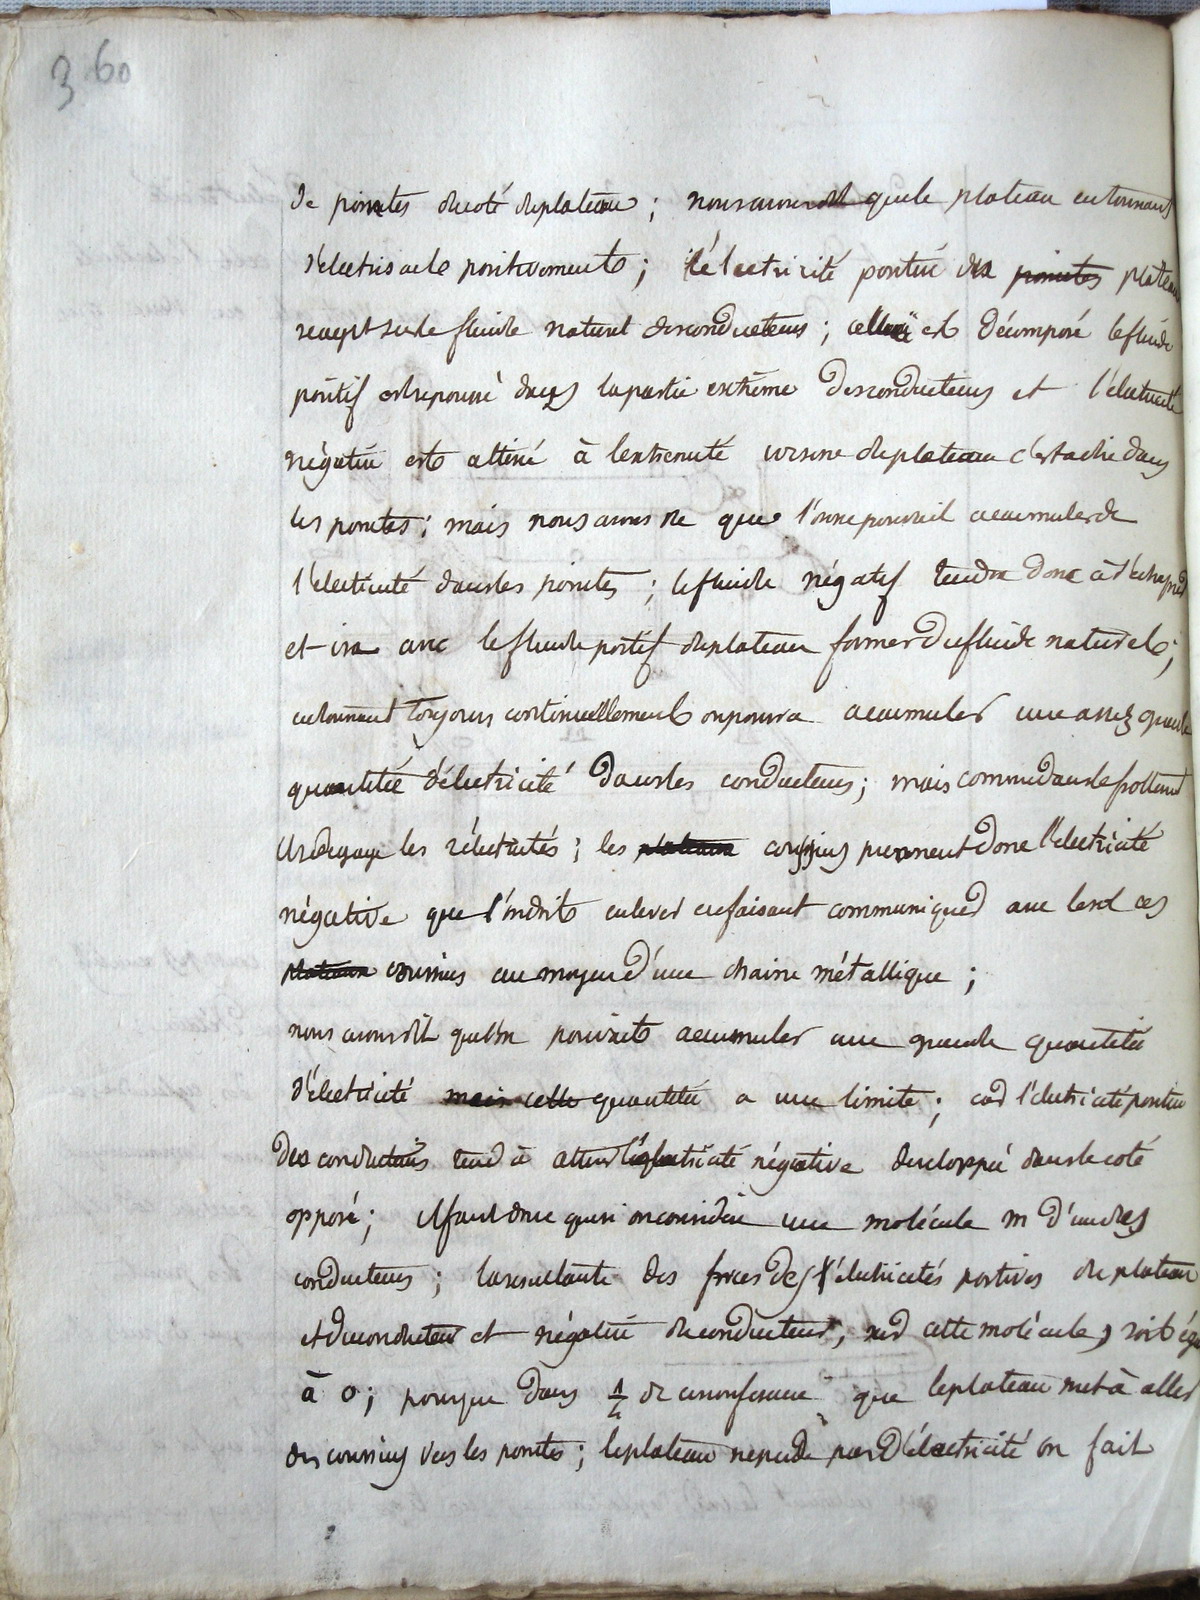 360
de pointes du coté du plateau ; nous avons dit que le plateau en tournant
s'électrisa le positivement ; l'électricité positive du pointes plateau
reagit sur le fluide naturel des conducteurs ; est décomposé le fluide
positif est repoussé dans la partie extrême des conducteurs et l'électricité
négative est attiré à l'extremité voisine du plateau c'est a dire dans
les pointes ; mais nous avons vu que l'on ne pouvait accumuler de
l'électricité dans les pointes ; le fluide négatif tendra donc à s'échapper
et ira avec le fluide positif du plateau former du fluide naturel ;
en tournant toujours continuellement on pourra accumuler une assez grande
quantitée d'électricité dans les conducteurs ; mais comme dans le frottement
il se dégage les électricités ; les plateaux coussins prennent donc l'électricité
négative que l'on doit enlever en faisant communiquer avec le sol ces
plateaux coussins au moyen d'une chaine métallique ;
nous avons dit que l'on pouvait accumuler une grande quantitée
d'électricité mais cette quantitée a une limite ; car l'électricité positive
des conducteurs tend à attirer l'électricité négative developpée dans le coté
opposé ; il faut donc que si on considère une molécule m d'un des
conducteurs ; la resultante des forces des électricités positives du plateau
et du conducteur et négative du conducteur, sur cette molécule, soit égale
à 0 ; pourque dans 1/4 de circonference que le plateau met à aller
des coussins vers les pointes ; le plateau ne perde pas d'électricité on fait